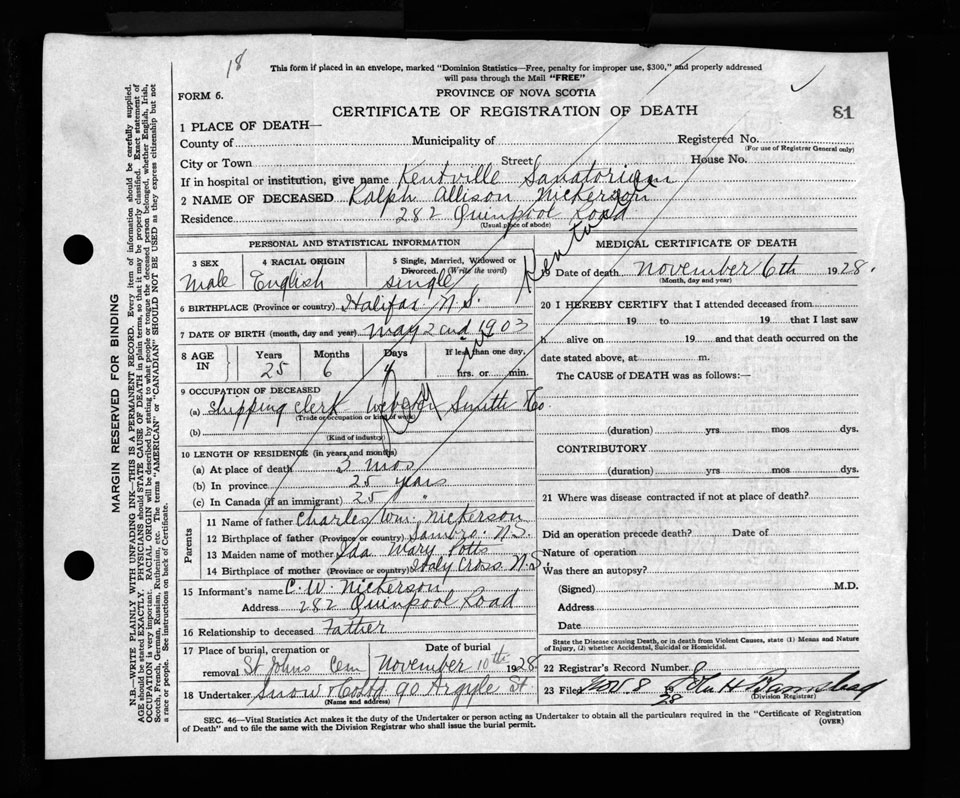 18
This form if placed in an envelope, marked "Dominion Statistics—Free, penalty for improper use, $300," and properly addressed
will pass through the Mail "FREE"
FORM 6.
PROVINCE OF NOVA SCOTIA
CERTIFICATE OF REGISTRATION OF DEATH
81
1 PLACE OF DEATH—
County of Municipality of Registered No.
(For use of Registrar General only)
City or Town Street House No.
If in hospital or institution, give name Kentville Sanatorium
2 NAME OF DECEASED Ralph Allison Nickerson
Residence 282 Quinpool Road
(Usual place of abode)
PERSONAL AND STATISTICAL INFORMATION
3 SEX 4 RACIAL ORIGIN 5 Single, Married, Widowed or
Divorced. (Write the word)
Male English single
6 BIRTHPLACE (Province or country) Halifax N.S.
7 DATE OF BIRTH (month, day and year) May 2nd 1903
8 AGE IN Years Months Days If less than one day,
25 6 4 hrs. or min.
9 OCCUPATION OF DECEASED
(a) Shipping clerk Smith Co.
(Trade occupation or kind of work)
(b)
(Kind of industry)
10 LENGTH OF RESIDENCE (in years and months)
(a) At place of death 3 mos
(b) In province 25 years
(c) In Canada (if an immigrant) 25 "
Parents
11 Name of father Charles Wm. Nickerson
12 Birthplace of father (Province or country) Sambro N.S.
13 Maiden name of mother Ida Mary Potts
14 Birthplace of mother (Province or country) Holy Cross N.S.
15 Informant's name C. W. Nickerson
Address 282 Quinpool Road
16 Relationship to deceased Father
17 Place of burial, cremation or Date of burial
removal St Johns Cem November 10th 1928
18 Undertaker Snow & Co Ltd 90 Argyle St.
(Name and address)
MEDICAL CERTIFICATE OF DEATH
19 Date of death November 6th 1928.
(Month, day and year)
20 I HEREBY CERTIFY that I attended deceased from
19 to 19 that I last saw
h alive on 19 and that death occurred on the
date stated above, at m.
The CAUSE of DEATH was as follows:—
(duration) yrs mos dys.
CONTRIBUTORY
(duration) yrs mos dys.
21 Where was disease contracted if not at place of death?
Did an operation precede death? Date of
Nature of operation
Was there an autopsy?
(Signed) M.D.
Address
Date
State the Disease causing Death, or in death from Violent Causes, state (1) Means and Nature
of Injury, (2) whether Accidental, Suicidal or Homicidal.
22 Registrar's Record Number
23 Filed Nov 8 1928
(Division Registrar)
SEC. 46—Vital Statistics Act makes it the duty of the Undertaker or person acting as Undertaker to obtain all the particulars required in the "Certificate of Registration
of Death" and to file the same with the Division Registrar who shall issue the burial permit.
(OVER)
MARGIN RESERVED FOR BINDING
N.B.—WRITE PLAINLY WITH UNFADING INK—THIS IS A PERMANENT RECORD. Every item of information should be carefully supplied.
AGE should be stated EXACTLY. PHYSICIANS should STATE CAUSE OF DEATH in plain terms, so that it may be properly classified. Exact statement of
OCCUPATION is very important. RACIAL ORIGIN will be described by stating to what people or tongue the deceased person belonged, whether English, Irish,
Scotch, French, German, Russian, Ruthenian, etc. The terms "AMERICAN" or "CANADIAN" SHOULD NOT BE USED as they express citizenship but not
a race or people. See instructions on back of Certificate.